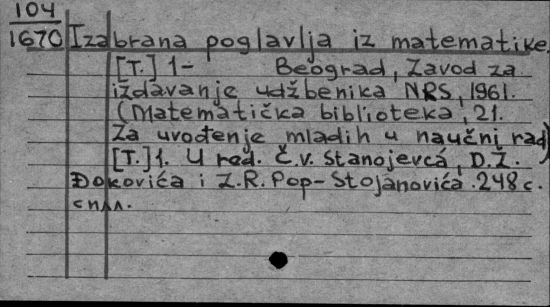 104
1670 Izabrana poglavlja iz matematike.
[T.] 1- Beograd, Zavod za
izdavanje udžbenika NRS, 1961.
(Matematička biblioteka, 21.
Za uvođenje mladih u naučni rad)
[T.] 1. U red. Č.V. Stanojevcá, D.Ž.
Đokovića i Z.R. Pop-Stojanovića. 248 c.
спл.